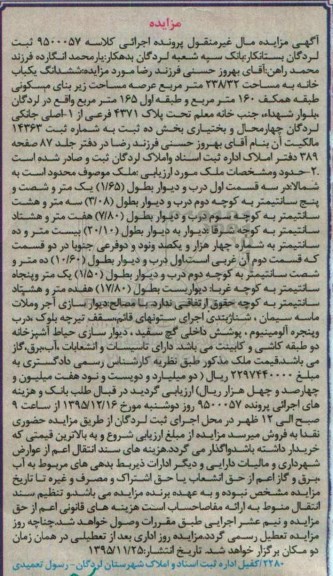 مزایده
آگهی مزایده مال غیرمنقول پرونده اجرائی کلاسه ۹۵۰۰۰۵۷ ثبت
لردگان بستانکار:بانک سپه شعبه لردگان بدهکار:یارمحمد انگارده فرزند
محمد راهن:آقای بهروز حسنی فرزند رضا مورد مزایده:ششدانگ یکباب
خانه به مساحت ۲۳۸/۳۲ متر مربع عرصه مساحت زیر بنای مسکونی
طبقه همکف ۱۶۰ متر مربع و طبقه اول ۱۶۵ متر مربع واقع در لردگان
،بلوار شهداء، جنب خانه معلم تحت پلاک ۴۳۷۱ فرعی از ۱-اصلی جانکی
لردگان چهارمحال و بختیاری بخش ده ثبت به شماره ثبت ۱۴۳۶۳
مالکیت آن بنام آقای بهروز حسنی فرزند رضا در دفتر جلد ۸۷ صفحه
۳۸۹ دفتر املاک اداره ثبت اسناد واملاک لردگان ثبت و صادر شده است
۲.-حدود ومشخصات ملک مورد ارزیابی :ملک موصوف محدود است به
شمالا:در سه قسمت اول درب و دیوار بطول (۱/۶۵) یک متر و شصت و
پنج سانتیمتر به کوچه دوم درب و دیوار بطول (۳/۰۸) سه متر و هشت
سانتیمتر به کوچه سوم درب و دیوار بطول (۷/۸۰) هفت متر و هشتاد
سانتیمتر به کوچه شرقا :دیوار به دیوار بطول (۲۰/۱۰) بیست متر و ده
سانتیمتر به شماره چهار هزار و یکصد ونود و دوفرعی جنوبا در دو قسمت
که قسمت دوم آن غربی است:اول درب و دیوار بطول (۱۰/۶۰) ده متر و
شصت سانتیمتر به کوچه دوم درب و دیوار بطول (۱/۵۰) یک متر وپنجاه
سانتیمتر به کوچه غربا: دیواریست بطول (۱۷/۸۰) هفده متر و هشتاد
سانتیمتر به کوچه حقوق ارتفاقی ندارد. با مصالح:دیوار سازی آجر وملات
ماسه سیمان ، شناژبندی اجرای ستونهای قائم،سقف تیرچه بلوک ،درب
وپنجره آلومینیوم ، پوشش داخلی گچ سفید ، دیوار سازی حیاط آشپزخانه
دو طبقه کاشی و کابینت می باشد. دارای تاسیسات و انشعابات ،آب،برق،گاز
می باشد.قیمت ملک مذکور طبق نظریه کارشناس رسمی دادگستری به
مبلغ ۲۲۹۷۴۴۰۰۰۰ ریال ( دو میلیارد و دویست و نود هفت میلیون و
چهارصد و چهل هزار ریال) ارزیابی گردید.در قبال طلب بانک و هزینه
های اجرائی پرونده ۹۵۰۰۰۵۷ روز دوشنبه مورخ ۱۳۹۵/۱۲/۱۶ از ساعت ۹
صبح الی ۱۲ ظهر در محل اجرای ثبت لردگان از طریق مزایده حضوری
نقدا به فروش میرسد مزایده از مبلغ ارزیابی شروع و به بالاترین قیمتی که
خریدار داشته باشدواگذار می گردد.هزینه های سند انتقال اعم از عوارض
شهرداری و مالیات دارایی و دیگر ادارات ذیربط بدهی های مربوط به آب
،برق و گاز اعم از حق انشعاب یا حق اشتراک و مصرف و غیره تا تاریخ
مزایده مشخص نبوده و به عهده برنده مزایده می باشدو تنظیم سند
انتقال منوط به ارائه مفاصاحساب است هزینه های قانونی اعم از حق
مزایده و نیم عشر اجرایی طبق مقررات وصول خواهد شد،چناچه روز
مزایده تعطیل رسمی گردد،مزایده روز اداری بعد از تعطیلی در همان زمان
دو مکان برگزار خواهد شد. تاریخ انتشار:۱۳۹۵/۱۱/۲۵
۲۲۸۰/کفیل اداره ثبت اسناد و املاک شهرستان لردگان- رسول تعمیدی